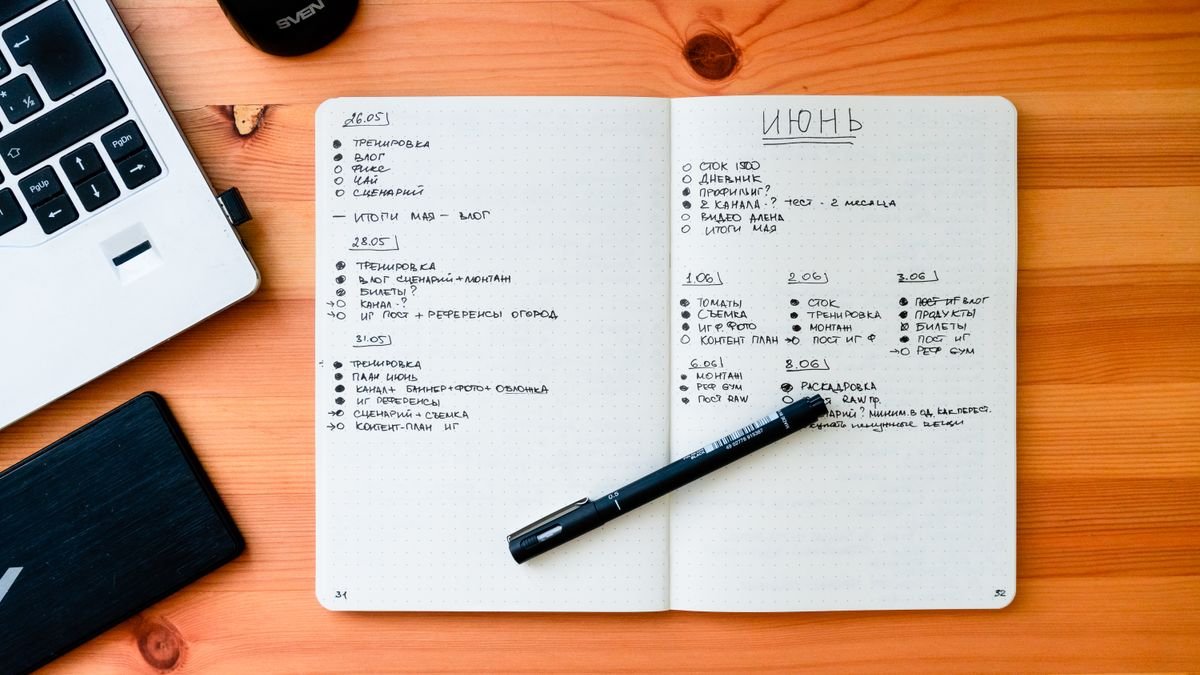 SVEN
½
PgDn
PgUp
26.05
ТРЕНИРОВКА
ВЛОГ
ФИКС
ЧАЙ
СЦЕНАРИЙ
— ИТОГИ МАЯ — ВЛОГ
28.05
ТРЕНИРОВКА
ВЛОГ СЦЕНАРИЙ+МОНТАЖ
БИЛЕТЫ?
КАНАЛ-?
ИГ ПОСТ + РЕФЕРЕНСЫ ОГОРОД
31.05
ТРЕНИРОВКА
ПЛАН ИЮНЬ
КАНАЛ+ БАННЕР+ФОТО+ ОБЛОЖКА
ИГ РЕФЕРЕНСЫ
СЦЕНАРИЙ+СЪЕМКА
КОНТЕНТ-ПЛАН ИГ
31
ИЮНЬ
СТОК 1500
ДНЕВНИК
ПРОФИЛЬ ИГ?
2 КАНАЛА-? ТЕСТ - 2 МЕСЯЦА
ВИДЕО АЛЕНА
ИТОГИ МАЯ
1.06
ТОМАТЫ
СЪЕМКА
ИГ Ф. ФОТО
КОНТЕНТ ПЛАН
2.06
СТОК
ТРЕНИРОВКА
МОНТАЖ
ПОСТ ИГ Ф
3.06
ПОСТ ИГ ВЛОГ
ПРОДУКТЫ
БИЛЕТЫ
ПОСТ ИГ
РЕФ GYM
6.06
МОНТАЖ
РЕФ GYM
ПОСТ RAW
8.06
РАСКАДРОВКА
RAW ПР.
МИНИМ. В ОД. КАК ПЕРЕСТ.
НЕНУЖНЫЕ ВЕЩИ
32
0.5
BLACK